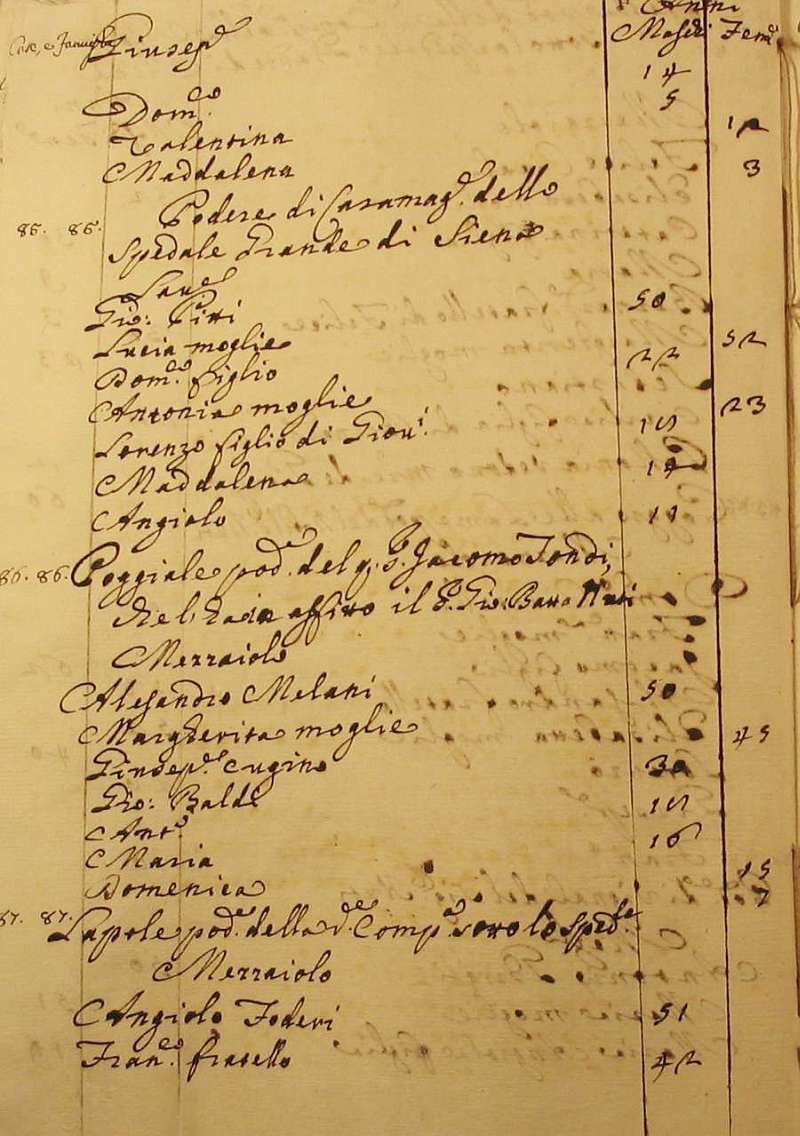 Case, e Famiglie Anni
Giusep.e Maschi Fem.e
14
Dom.co 5
Valentina 12
Maddalena 3
85. 85. Podere di Casamag.e dello
Spedale Grande di Siena
Lau.e
Gio: Piri 50
Lucia moglie 52
Dom.co figlio 22
Antonia moglie 23
Lorenzo figlio di Giov:
Maddalena
Angiolo 11
86. 86. Poggiale pod.e del q. S. Jacomo Tondi
il S. Gio: Batta
Mezzaiolo
Alesandro Melani 50
Margherita moglie 45
Giusep.e cugino 30
Gio: Balde
Ant.o 16
Maria 15
Domenica 7
87. 87. Lapole pod.e della d.e Comp.a sotto lo Sped.e
Mezzaiolo
Angiolo Foderi 51
Fran.co fratello 42